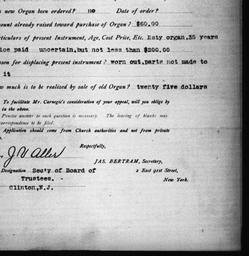 s new Organ been ordered? no Date of order?
mount already raised toward purchase of Organ? $60.00
articulars of present Instrument, Age, Cost Price, Etc. Esty organ.35 years
rice paid uncertain,but not less than $200.00
ason for displacing present instrument? worn out,parts not made to
it
ow much is to be realized by sale of old Organ? twenty five dollars
To facilitate Mr. Carnegie's consideration of your appeal, will you oblige by
in the above.
Precise answer to each question is necessary. The leaving of blanks may
correspondence to be filed.
Application should come from Church authorities and not from private
Respectfully,
J V Aller
JAS. BERTRAM, Secretary,
Designation Secty of Board of 2 East 91st Street,
Trustees. New York.
Clinton,N.J.